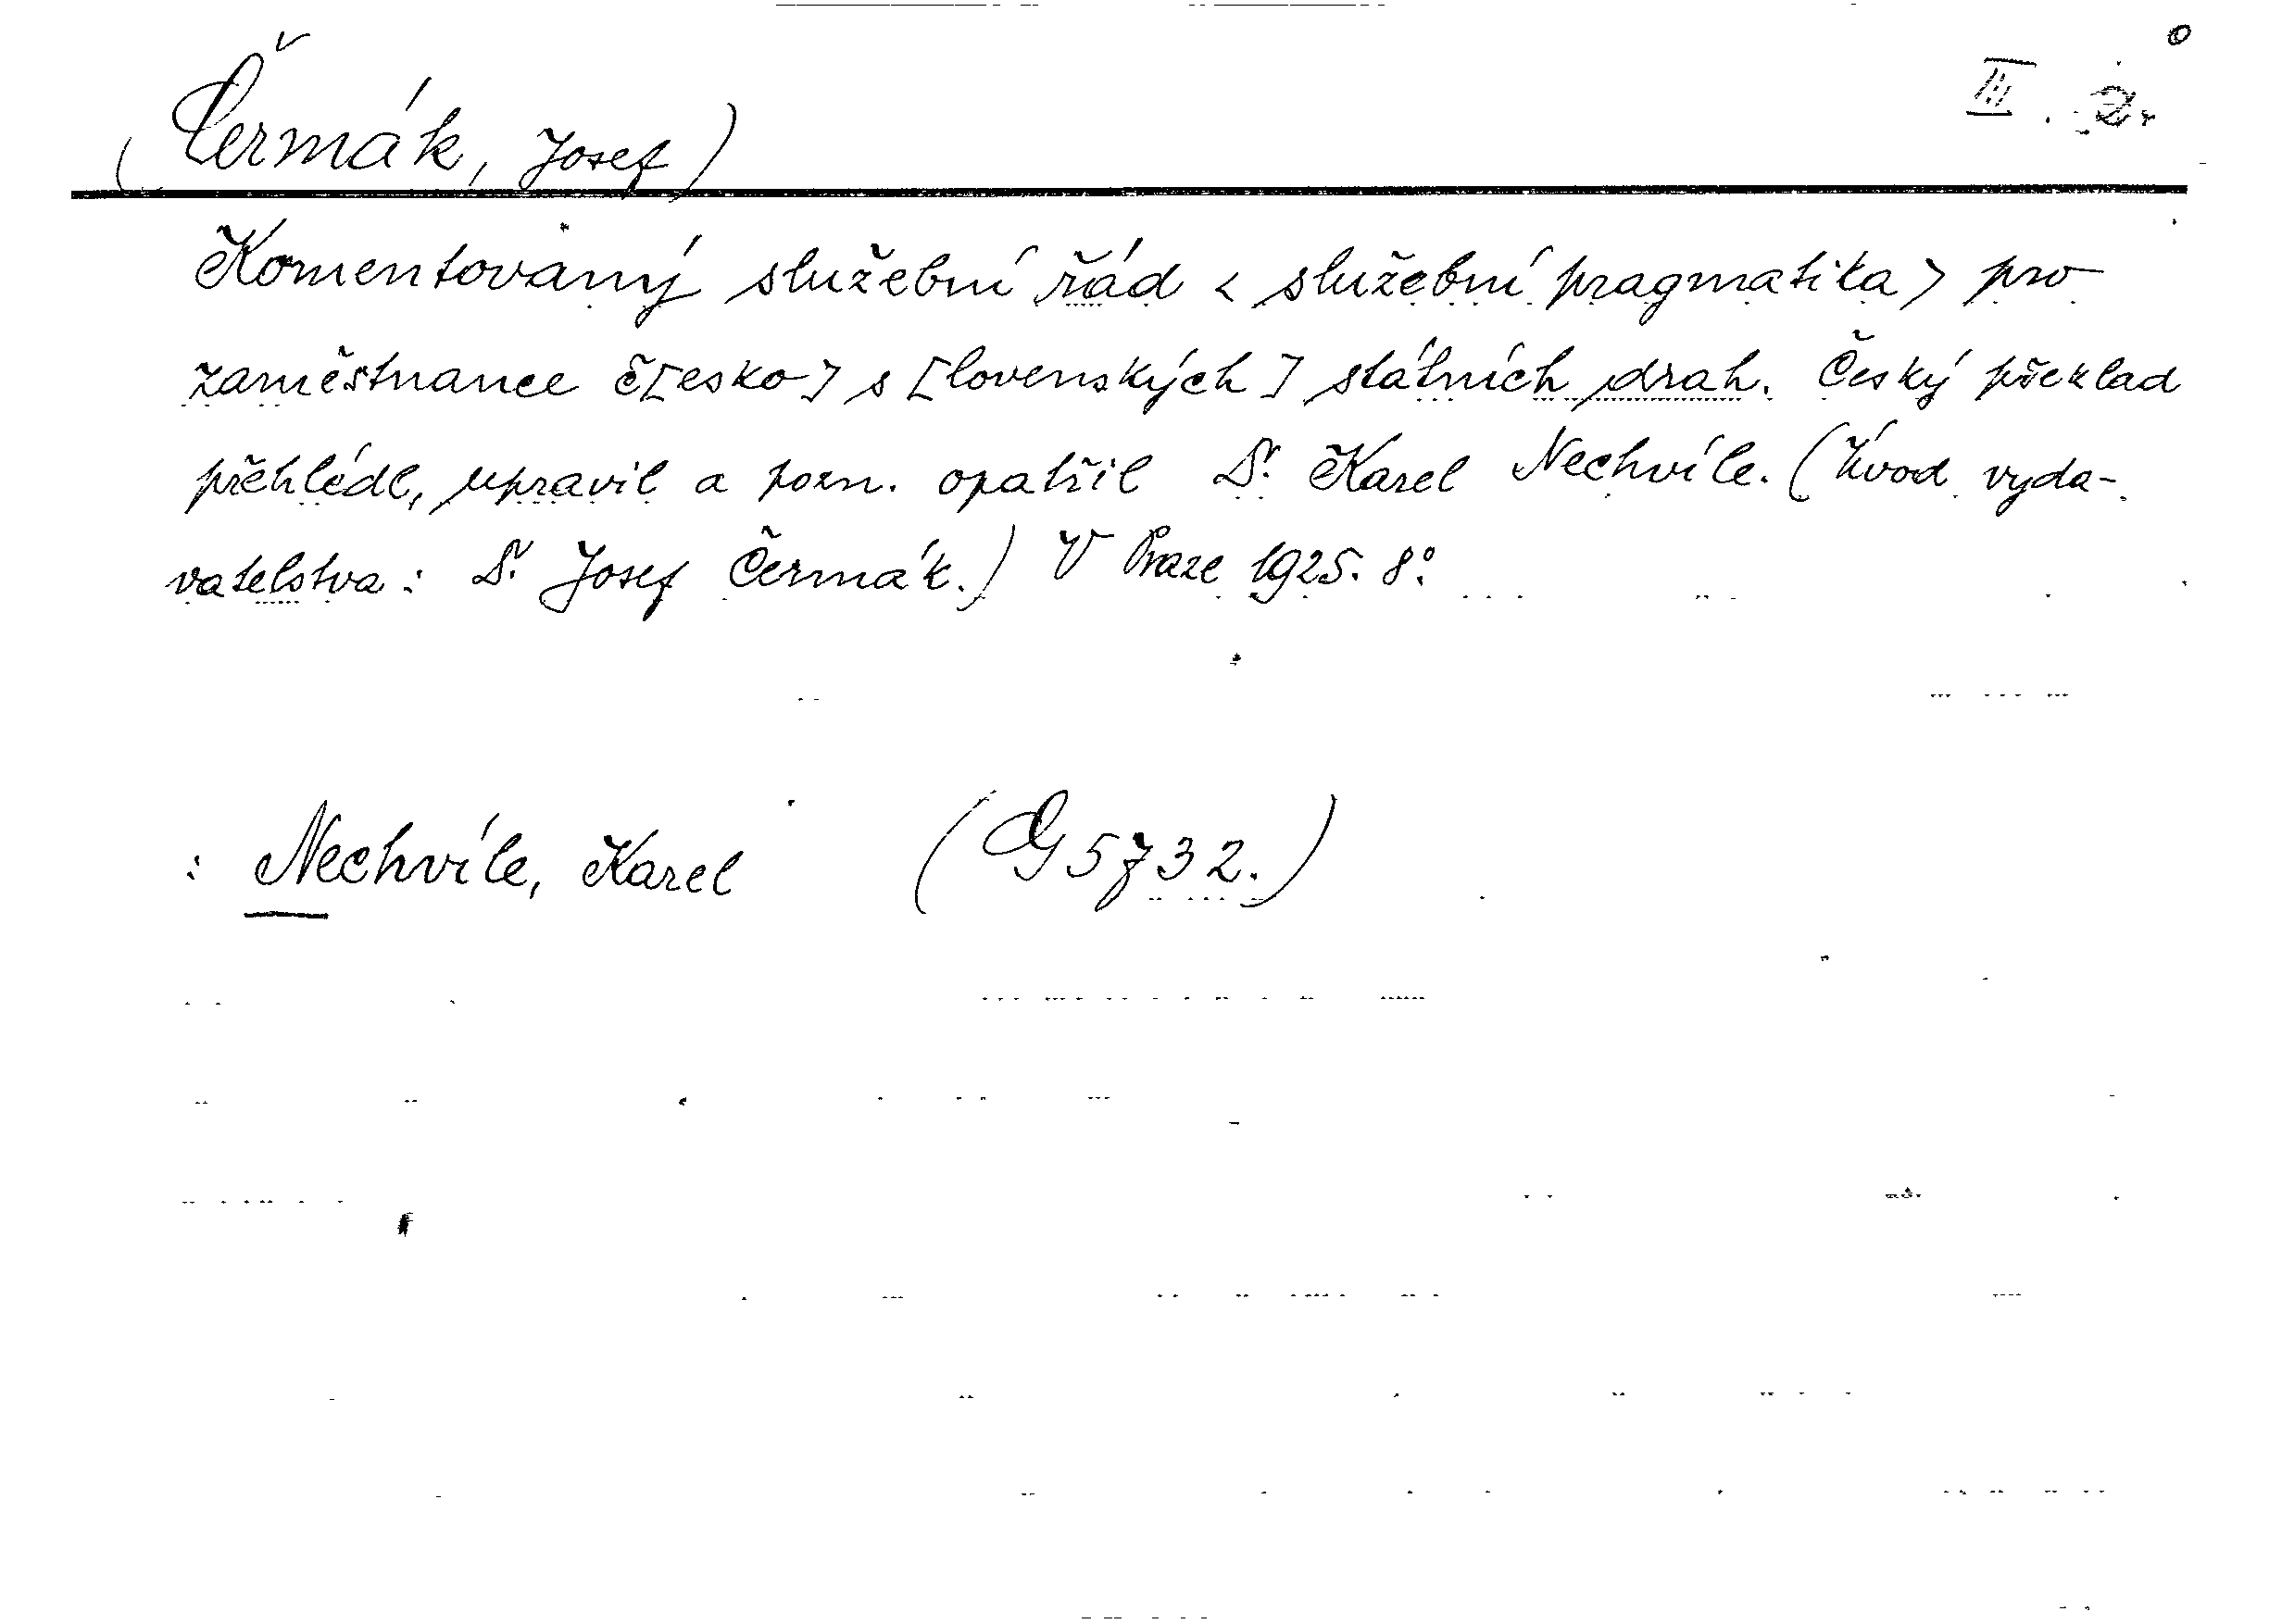 (Čermák, Josef)
III. 2.
Komentovaný služební řád < služební pragmatika > pro
zaměstnance č[esko] s[lovenských] státních drah. Český překlad
přehlédl, upravil a pozn. opatřil Dr. Karel Nechvíle. (Úvod vyda-
vatelstva: Dr. Josef Čermák.) V Praze 1925. 8°.
: Nechvíle, Karel (G 5732.)